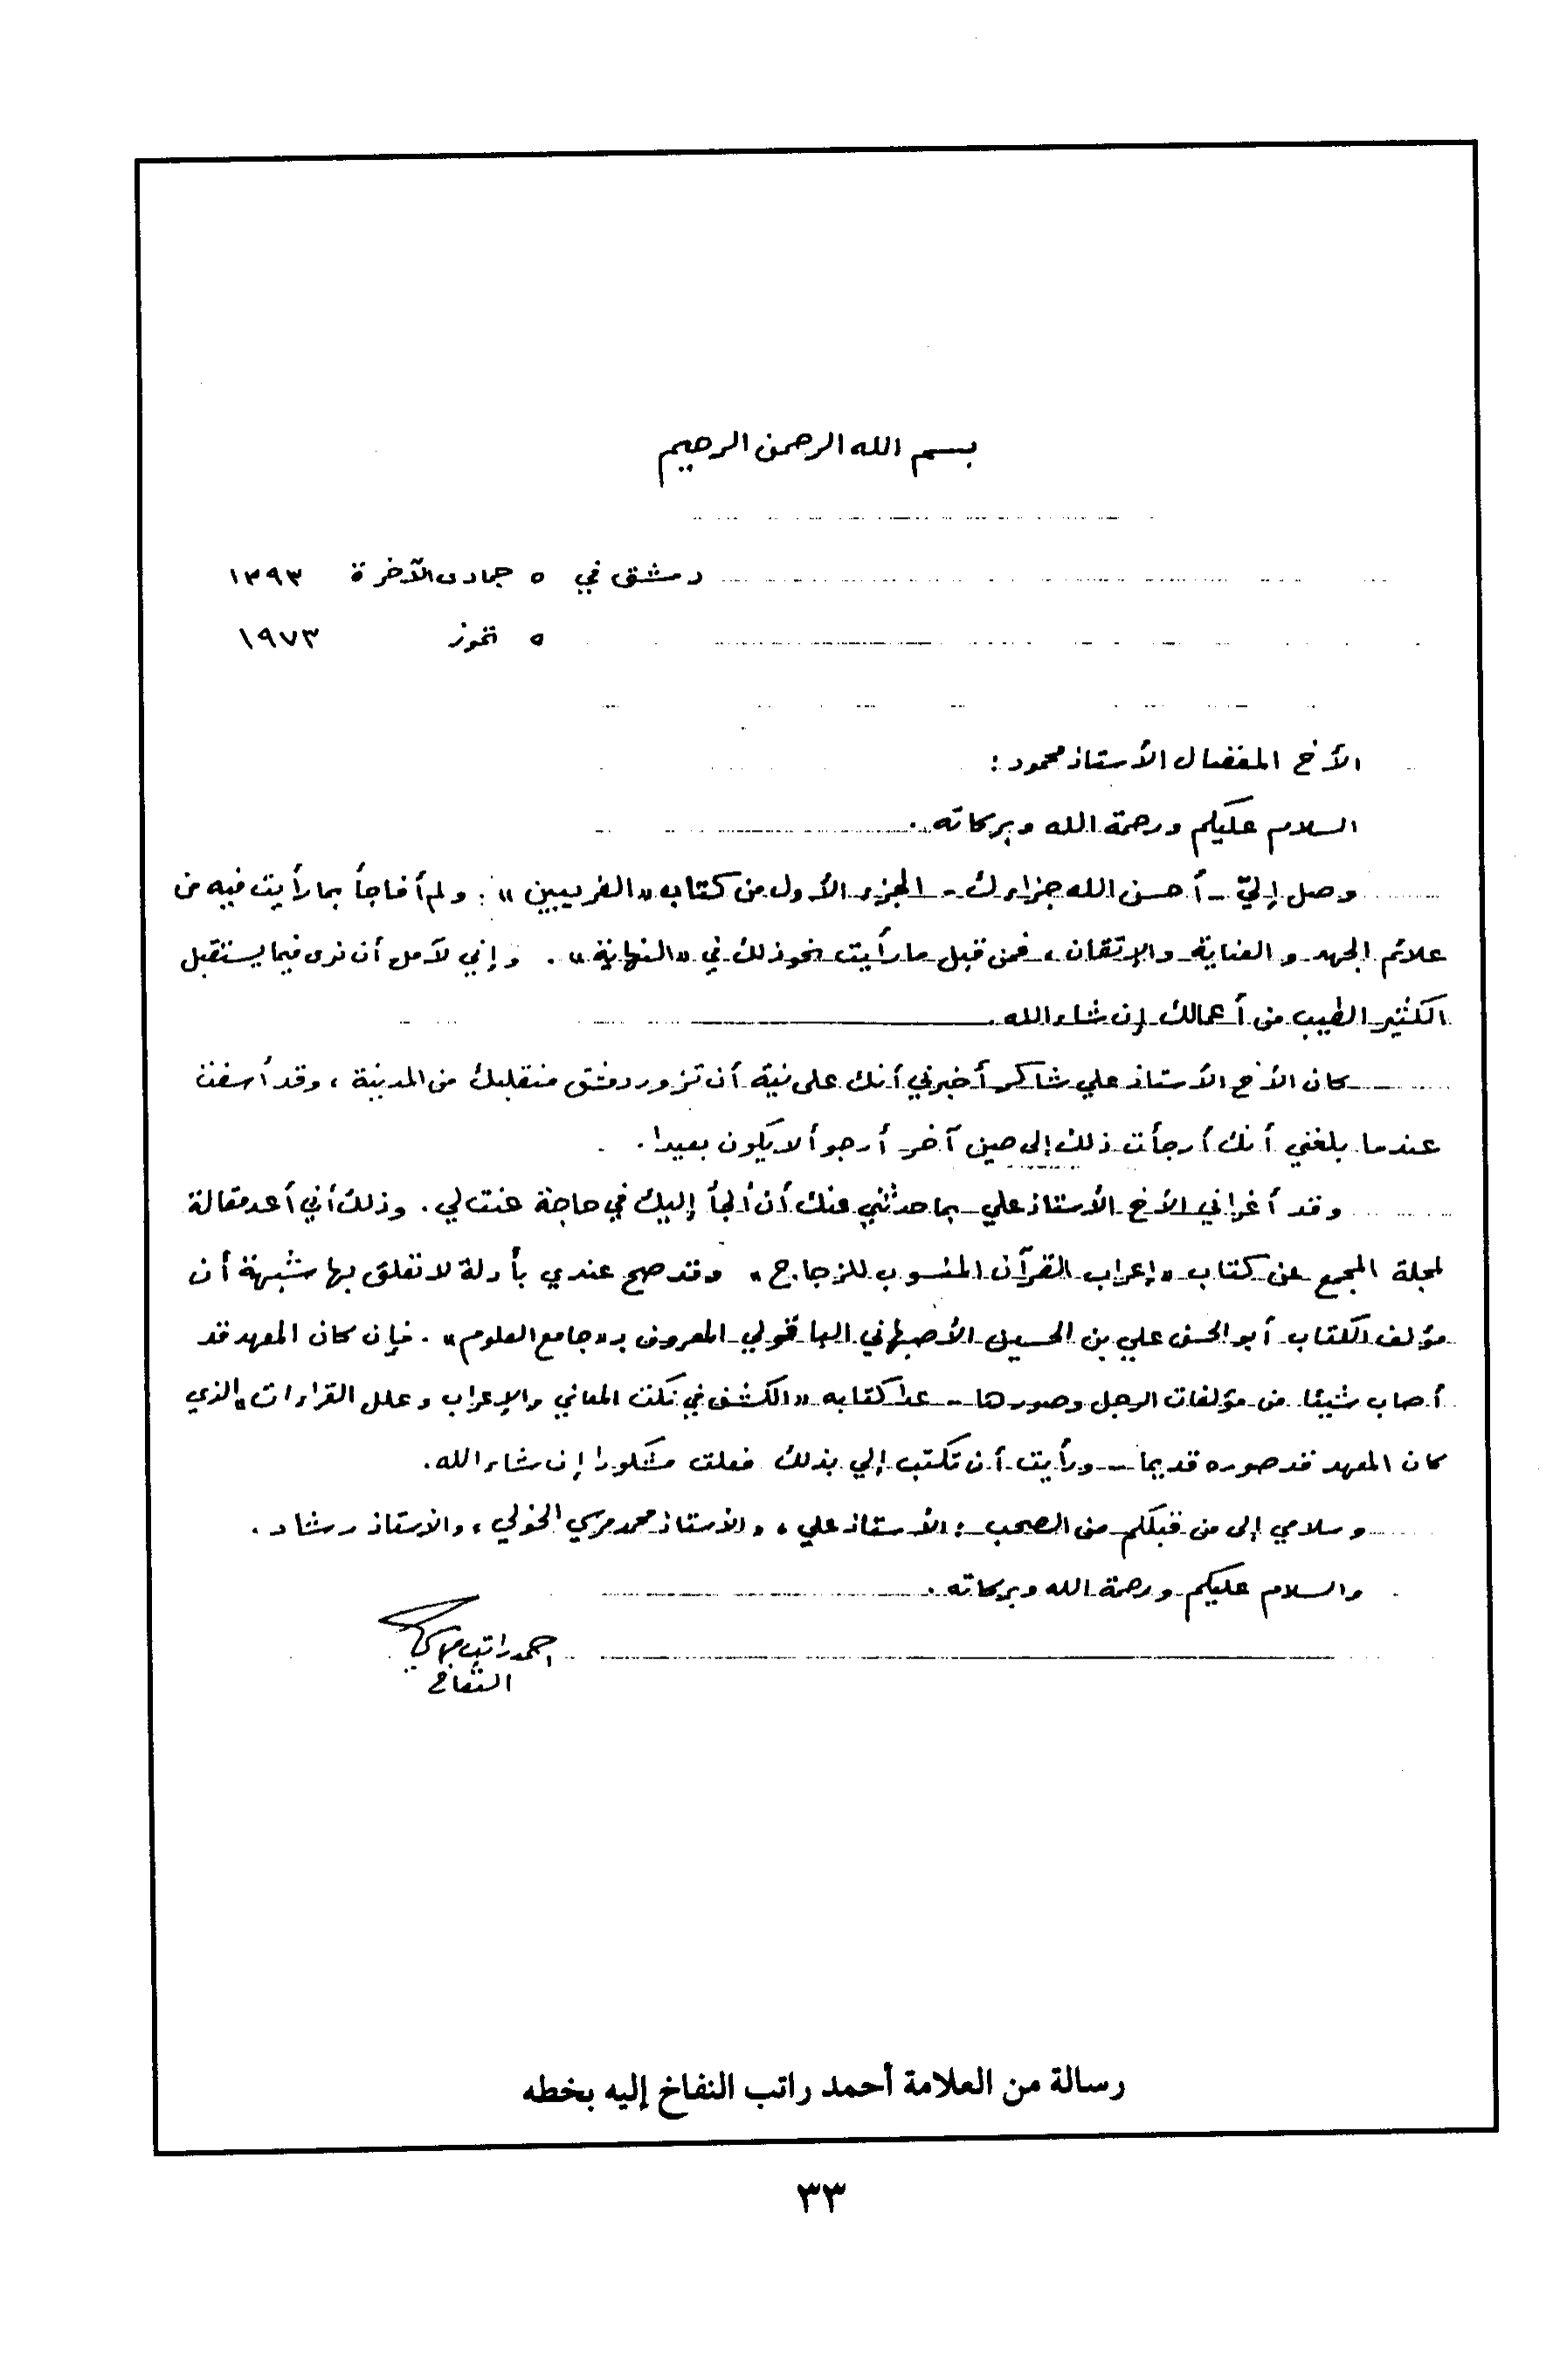 بسم الله الرحمن الرحيم
دمشق في ٥ جمادى الآخرة ١٣٩٣
٥ تموز ١٩٧٣
الأخ المفضال الأستاذ محمود :
السلام عليكم ورحمة الله وبركاته .
وصل إليّ - أحسن الله جزاءك - الجزء الأول من كتاب «الغريبين» . ولم أفاجأ بما رأيت فيه من
علائم الجهد والعناية والإتقان ، فمن قبل ما رأيت نحو ذلك في «النهاية» . وإني لآمل أن نرى فيما يستقبل
الكثير الطيب من أعمالك إن شاء الله .
كان الأخ الأستاذ علي شاكر أخبرني أنك على نية أن تزور دمشق منقلبك من المدينة ، وقد أسفت
عندما بلغني أنك أرجأت ذلك إلى حين آخر أرجو ألا يكون بعيدا .
وقد أغراني الأخ الأستاذ علي بما حدثني عنك أن ألجأ إليك في حاجة عنت لي . وذلك أني أعد مقالة
لمجلة المجمع عن كتاب «إعراب القرآن المنسوب للزجاج» وقد صح عندي بأدلة لا تعلق بها شبهة أن
مؤلف الكتاب أبو الحسن علي بن الحسين الأصبهاني الباقولي المعروف بـ «جامع العلوم» . فإن كان المعهد قد
أصاب شيئا من مؤلفات الرجل وصورها - عدا كتابه «الكشف في نكت المعاني والإعراب وعلل القراءات» الذي
كان المعهد قد صوره قديما - ورأيت أن تكتب إلي بذلك فعلت مشكورا إن شاء الله .
وسلامي إلى من قبلكم من الصحب : الأستاذ علي ، والأستاذ محمد مرسي الخولي ، والأستاذ رشاد .
والسلام عليكم ورحمة الله وبركاته .
احمد راتب
النفاخ
رسالة من العلامة أحمد راتب النفاخ إليه بخطه
٣٣